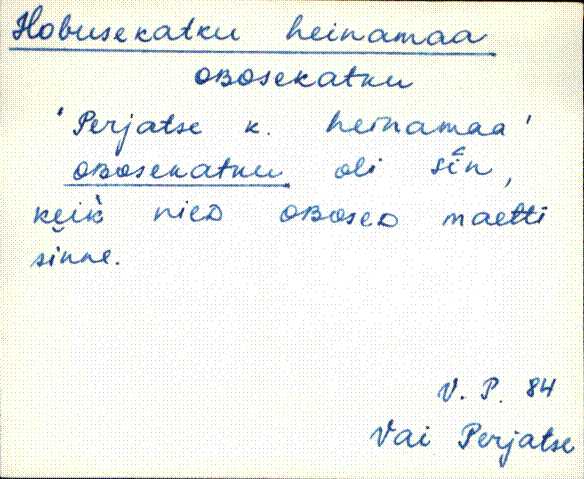 Hobusekatku heinamaa
oʙosekatku
'Perjatse k. heinamaa'
oʙosekatku oli siin,
keik nieᴅ oʙoseᴅ maetti
sinne.
V. P. 84
Vai Perjatse